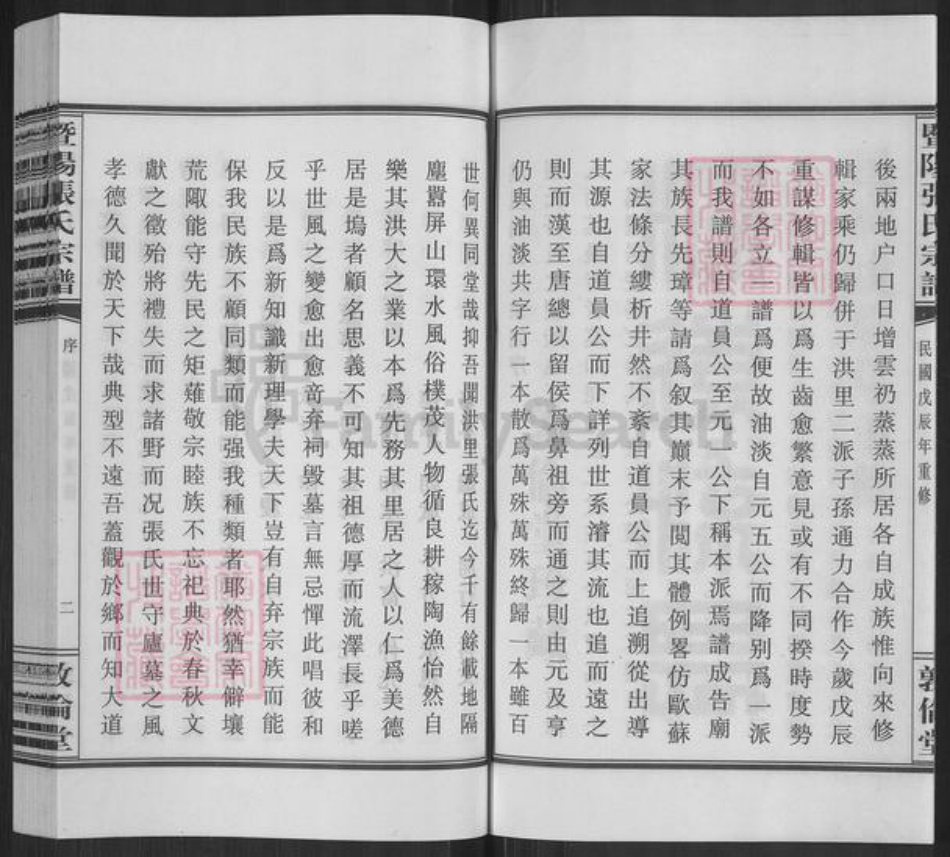 暨陽張氏宗譜
民國戊辰年重修
敦倫堂
後兩地户口日增雲礽蒸蒸所居各自成族惟向來修
輯家乘仍歸併于洪里二派子孫通力合作今歲戊辰
重謀修輯皆以爲生齒愈繁意見或有不同揆時度勢
不如各立一譜爲便故油淡自元五公而降别爲一派
而我譜則自道員公至元一公下稱本派焉譜成告廟
其族長先璋等請爲叙其巔末予閲其體例畧仿歐蘇
家法條分縷析井然不紊自道員公而上追溯從出導
其源也自道員公而下詳列世系濬其流也追而遠之
則而漢至唐總以留侯爲鼻祖旁而通之則由元及亨
仍與油淡共字行一本散爲萬殊萬殊終歸一本雖百
世何異同堂哉抑吾聞洪里張氏迄今千有餘載地隔
塵囂屏山環水風俗樸茂人物循良耕稼陶漁怡然自
樂其洪大之業以本爲先務其里居之人以仁爲美德
居是塢者顧名思義不可知其祖德厚而流澤長乎嗟
乎世風之變愈出愈竒弃祠毁墓言無忌憚此唱彼和
反以是爲新知識新理學夫天下豈有自弃宗族而能
保我民族不顧同類而能强我種類者耶然猶幸僻壤
荒陬能守先民之矩薙敬宗睦族不忘祀典於春秋文
獻之徵殆將禮失而求諸野而况張氏世守廬墓之風
孝德久聞於天下哉典型不遠吾蓋觀於鄉而知大道
暨陽張氏宗譜
序
二
敦倫堂
FamilySearch